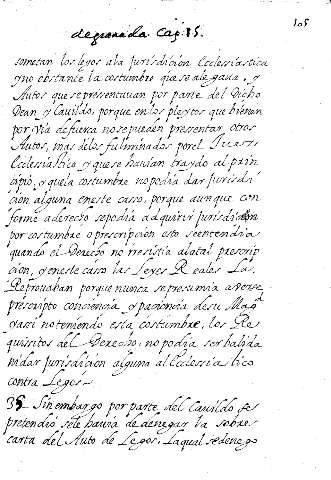 105
de granada Cap. 15.
sometan los legos ala Jurisdicion Ecclesiastica
y no obstante la costumbre que se alegaua, y
Autos que se presentauan por parte del Dicho
Dean, y Cauildo, porque en los pleytos que bienen
por Via de fuerca no se pueden presentar, otros
Autos, mas de los fulminados por el Juez
Ecclesiastico y que se hauian traydo al prin
cipio, y que la costumbre no podia dar Jurisdi
cion alguna en este caso, porque aunque con
forme a derecho se podia adquirir jurisdicion
por costumbre o prescripcion esto se entendia
quando el Derecho no rresistia a la tal prescrip
cion, y en este caso las Leyes Reales La
Reprouaban porque nunca se presumia averse
prescripto conciencia y paciencia de su Magd
y assi no teniendo esta costumbre, los Re
quisitos del Derecho, no podia ser balida
ni dar jurisdicion alguna al Ecclesiastico
contra Legos
35 Sin embargo por parte del Cauildo se
pretendio se le hauia de denegar la sobre
carta del Auto de Legos, La qual se denego